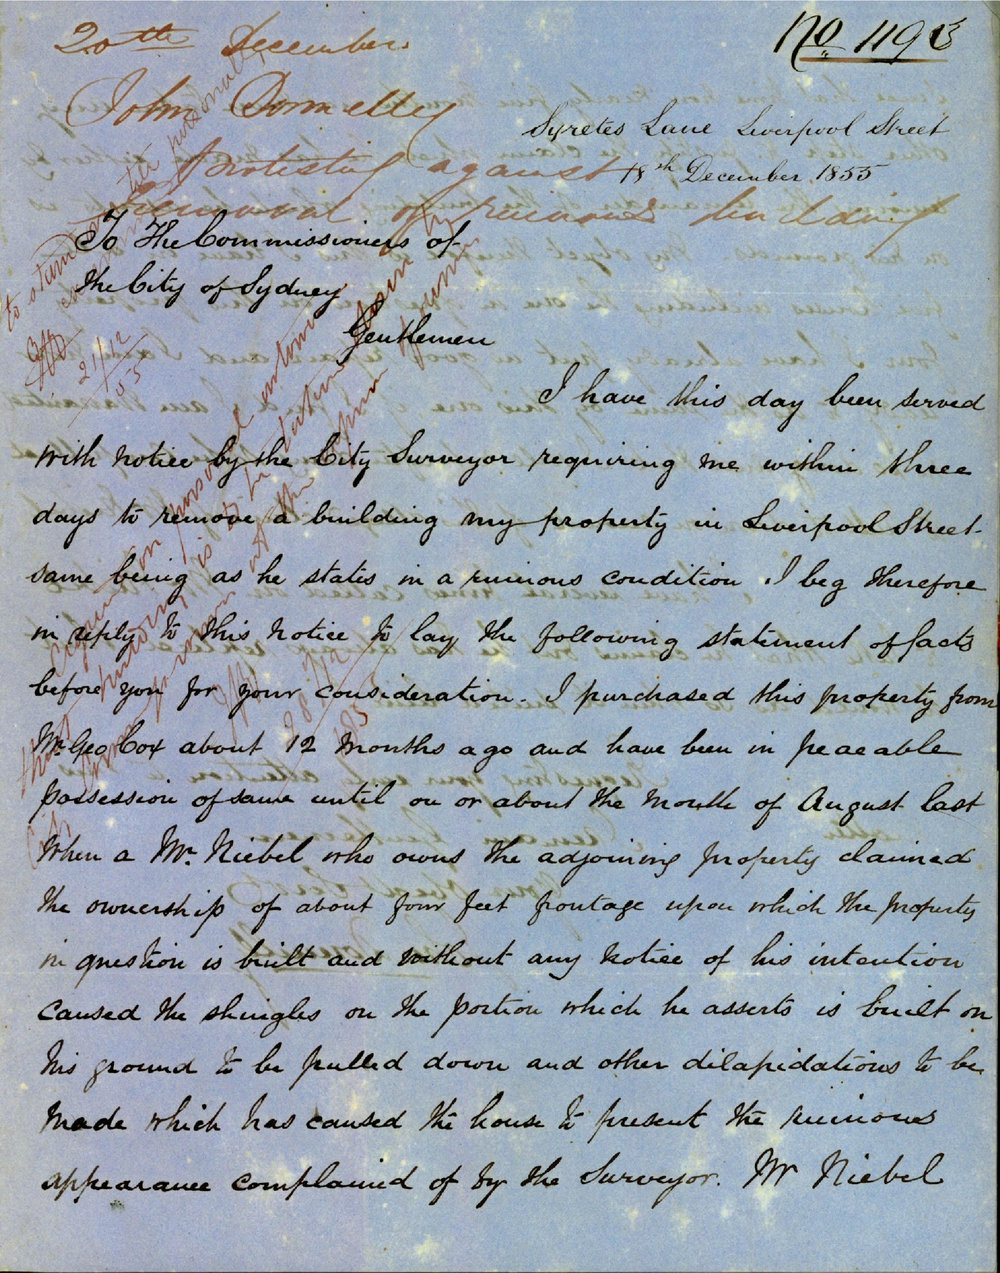 No 1193
20th December
John Donnelly
protesting against
removal of ruinous building
Syretes Lane Liverpool Street
18th December 1855
To The Commissioners of
The City of Sydney
Gentlemen
I have this day been served
with notice by the City Surveyor requiring me within three
days to remove a building my property in Liverpool Street
same being as he states in a ruinous condition. I beg therefore
in reply to this notice to lay the following statement of facts
before you for your consideration. I purchased this property from
Mr. Geo Cox about 12 months ago and have been in peaeable
possession of same until on or about the month of August last
when a Mr. Niebel who owns the adjoining property claimed
the ownership of about four feet frontage upon which the property
in question is built and without any notice of his intention
caused the shingles on the portion which he asserts is built on
his ground to be pulled down and other dilapidations to be
made which has caused the house to present the ruinous
appearance complained of by the Surveyor. Mr Niebel
21/12
55
28/12
1855